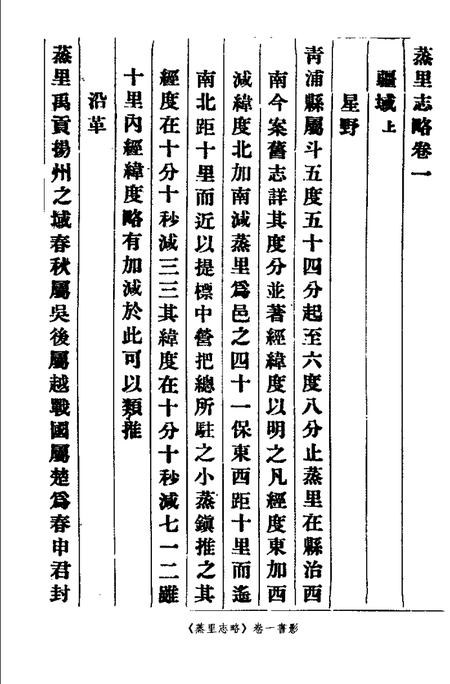 蒸里志略卷一
疆域上
星野
靑浦縣屬斗五度五十四分起至六度八分止蒸里在縣治西
南今案舊志詳其度分並著經緯度以明之凡經度東加西
減緯度北加南減蒸里爲邑之四十一保東西距十里而遙
南北距十里而近以提標中營把總所駐之小蒸鎭推之其
經度在十分十秒減三三其緯度在十分十秒減七一二雖
十里內經緯度略有加減於此可以類推
沿革
蒸里禹貢揚州之域春秋屬吳後屬越戰國屬楚爲春申君封
《蒸里志略》卷一書影